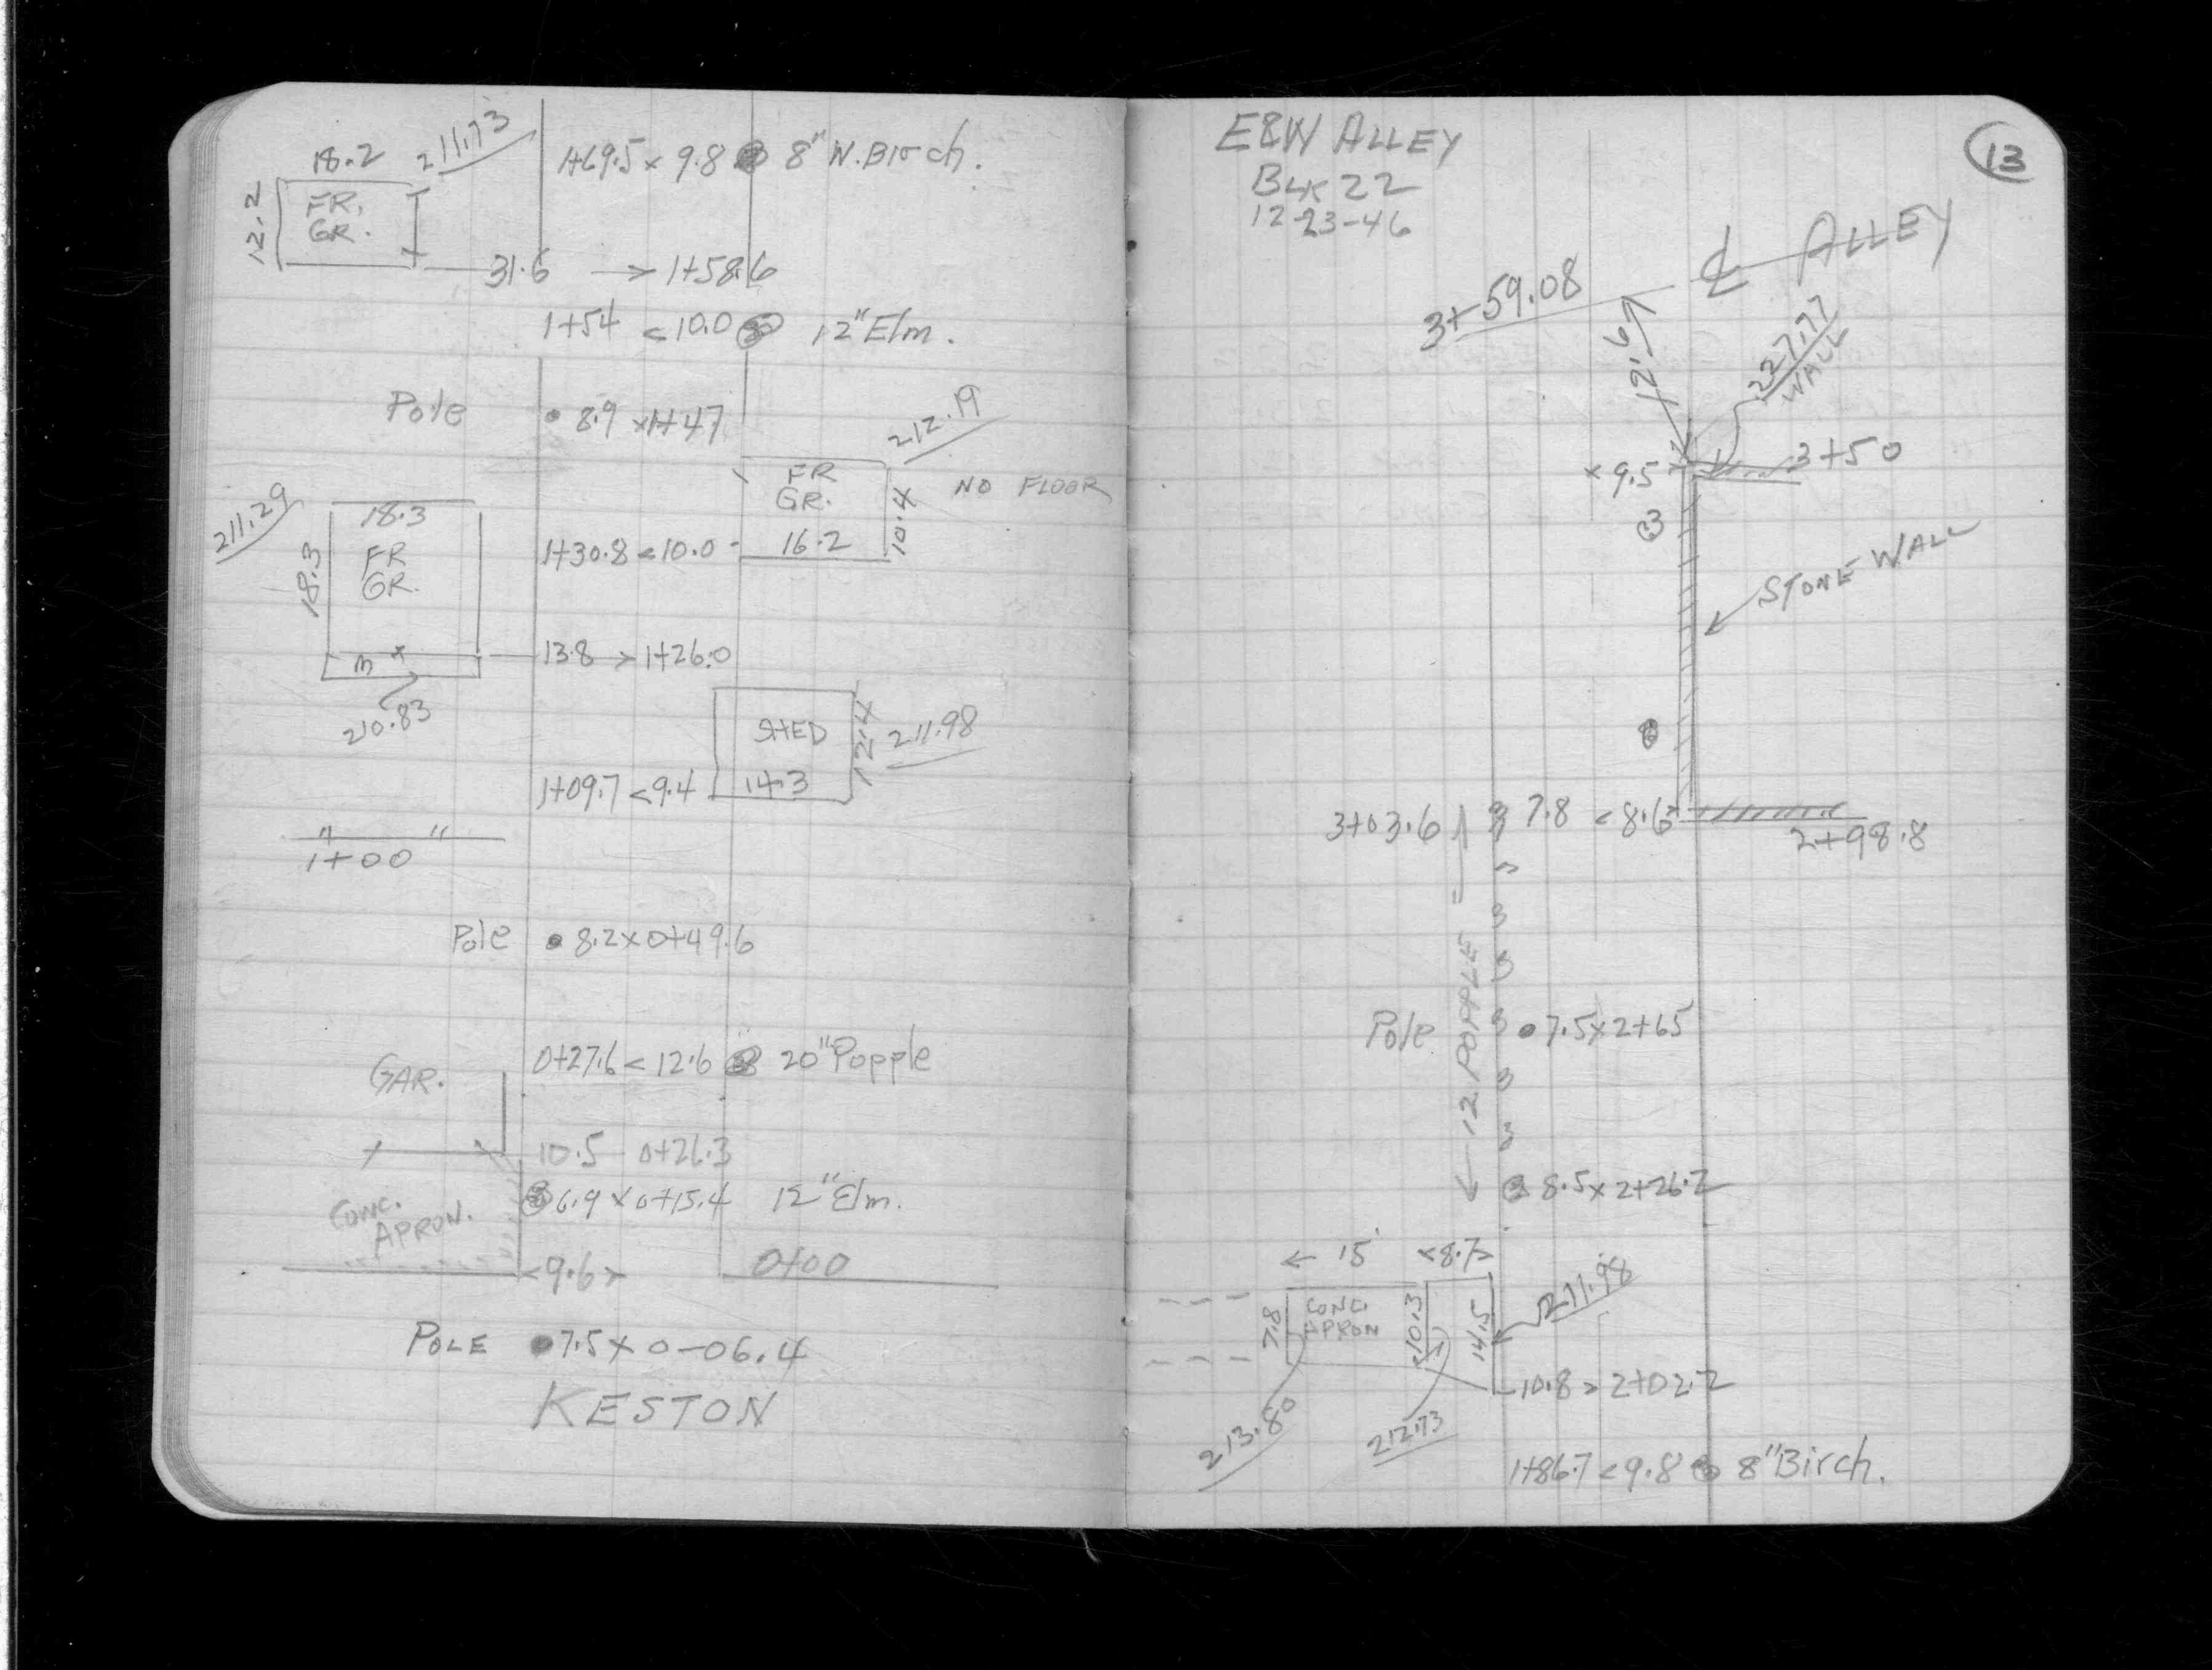 18.2
211.73
12.2
FR.
GR.
1+69.5 x 9.8 8" W. Birch.
31.6 → 1+58.6
1+54 < 10.0 12" Elm.
Pole • 8.9 x 1+47
212.19
FR
GR.
16.2
10.4
NO FLOOR
211.29
18.3
18.3
FR
GR.
1+30.8 < 10.0
13.8 > 1+26.0
210.83
SHED
14.3
12.4
211.98
1+09.7 < 9.4
1+00
Pole • 8.2 x 0+49.6
0+27.6 < 12.6 20" Popple
GAR.
10.5 0+26.3
6.9 x 0+15.4 12" Elm.
CONC.
APRON.
<9.6>
0+00
POLE • 7.5 x 0-06.4
KESTON
E&W ALLEY
BLK 22
12-23-46
13
℄ ALLEY
3+59.08
12.6
227.77
WALL
x 9.5
3+50
STONE WALL
3+03.6
7.8 < 8.6
2+98.8
12 POPPLE
Pole • 7.5 x 2+65
8.5 x 2+26.2
← 15' <8.7>
7.8
CONC.
APRON
10.3
14.5
211.98
10.8 > 2+02.2
213.80
212.73
1+86.7 < 9.8 8" Birch.